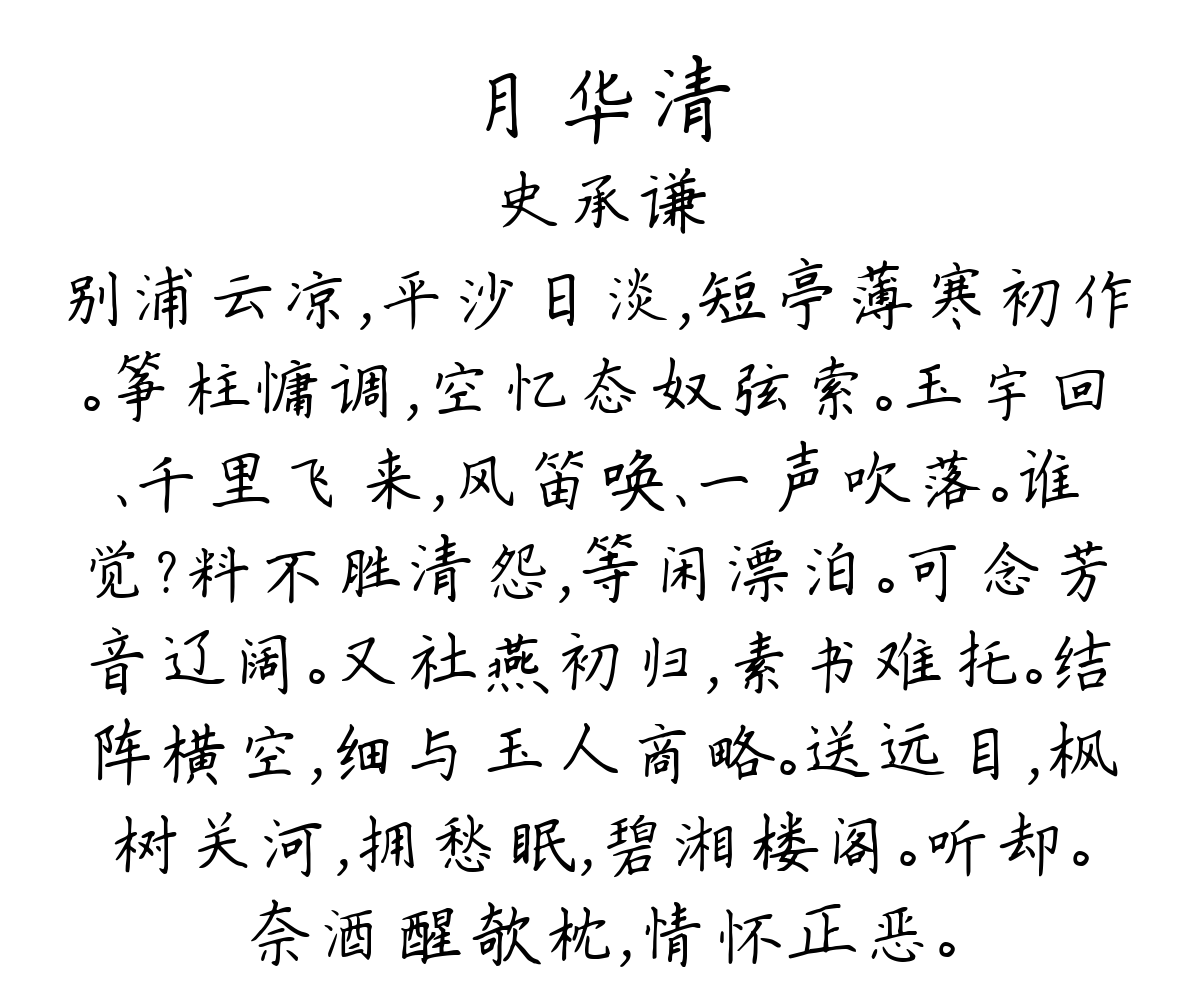 月华清
史承谦
别浦云凉,平沙日淡,短亭薄寒初作
。筝柱慵调,空忆态奴弦索。玉宇回
、千里飞来,风笛唤、一声吹落。谁
觉?料不胜清怨,等闲漂泊。可念芳
音辽阔。又社燕初归,素书难托。结
阵横空,细与玉人商略。送远目,枫
树关河,拥愁眠,碧湘楼阁。听却。
奈酒醒欹枕,情怀正恶。